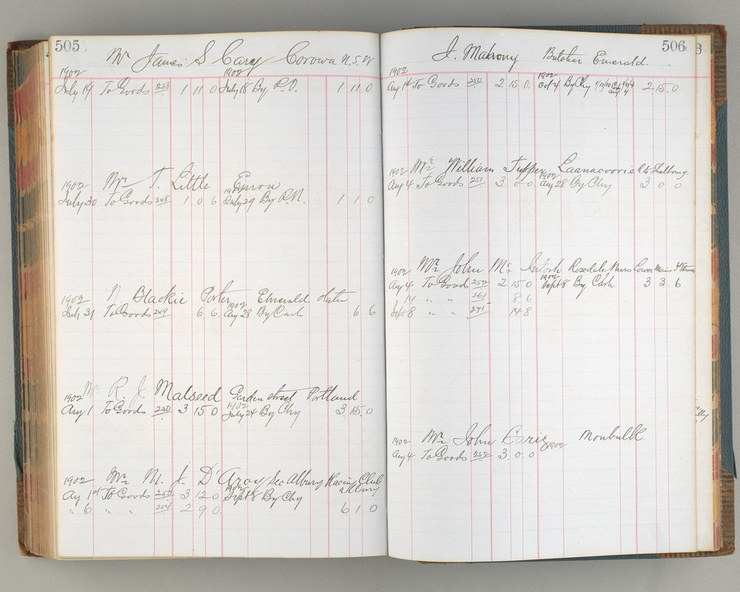 505
Mr James S Carey Corowa N.S.W
1902 1902
July 19 To Goods 228 1 11 0 July 18 By P.O. 1 11 0
1902 Mr T. Little
July 30 To Goods 248 1 0 6 July 29 By P.N. 1 1 0
1902 Blackie Porter Emerald
July 31 To Goods 249 6 6 Aug 28 By Cash 6 6
Mr R. J. Malseed Garden street Portland
1902 1902
Aug 1 To Goods 250 3 15 0 July 24 By Chq 3 15 0
1902 Mr M. J. D'Arcy Sec Albury Racing Club
Albury
Ag 1st To Goods 252 3 12 0 Sept 8 By Chq
" 6 " " 254 2 9 0 6 1 0
506
J. Mahony Butcher Emerald
1902 1902
Aug 1st To Goods 250 2 15 0 Oct 4 By Chq 2 15 0
1902 Mr William Laanacoorie
Aug 4 To Goods 251 3 0 0 Aug 28 By Chq 3 0 0
1902 Mr John McIntosh Rosedale
Aug 4 To Goods 252 2 15 0 Sept 8 By Cash 3 3 6
14 " " 261 8 6
Sept 8 " " 271 14 8
1902 Mr John 1902 Monbulk
Aug 4 To Goods 252 3 0 0